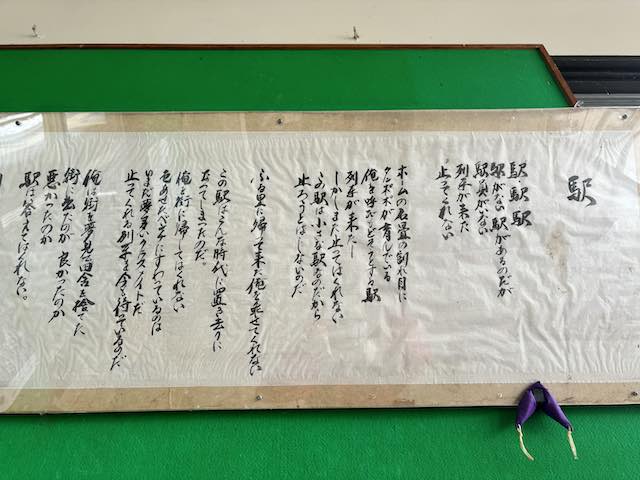 駅
駅 駅 駅
駅がない 駅があるのだが
駅員がいない
列車が来た
止ってくれない
ホームの石畳の割れ目に
タンポポが育している
俺を呼びどそうとする駅
列車が来たー
しかしまた止ってはくれない
この駅は小さな駅なのだから
止ろうとはしないのだ
ふる里に帰って来た俺を乗せてくれない
この駅はそんな時代に置き去りに
なってしまったのだ。
俺を街に帰してはくれない
色あせたベンチにすわっているのは
いまだ夢多いクラスメイトだ
止ってくれる列車を今も待っているのだ
俺は街を夢見て田舎を捨てた
街に出たのが 良かったのか
悪かったのか
駅は答えてはくれない。